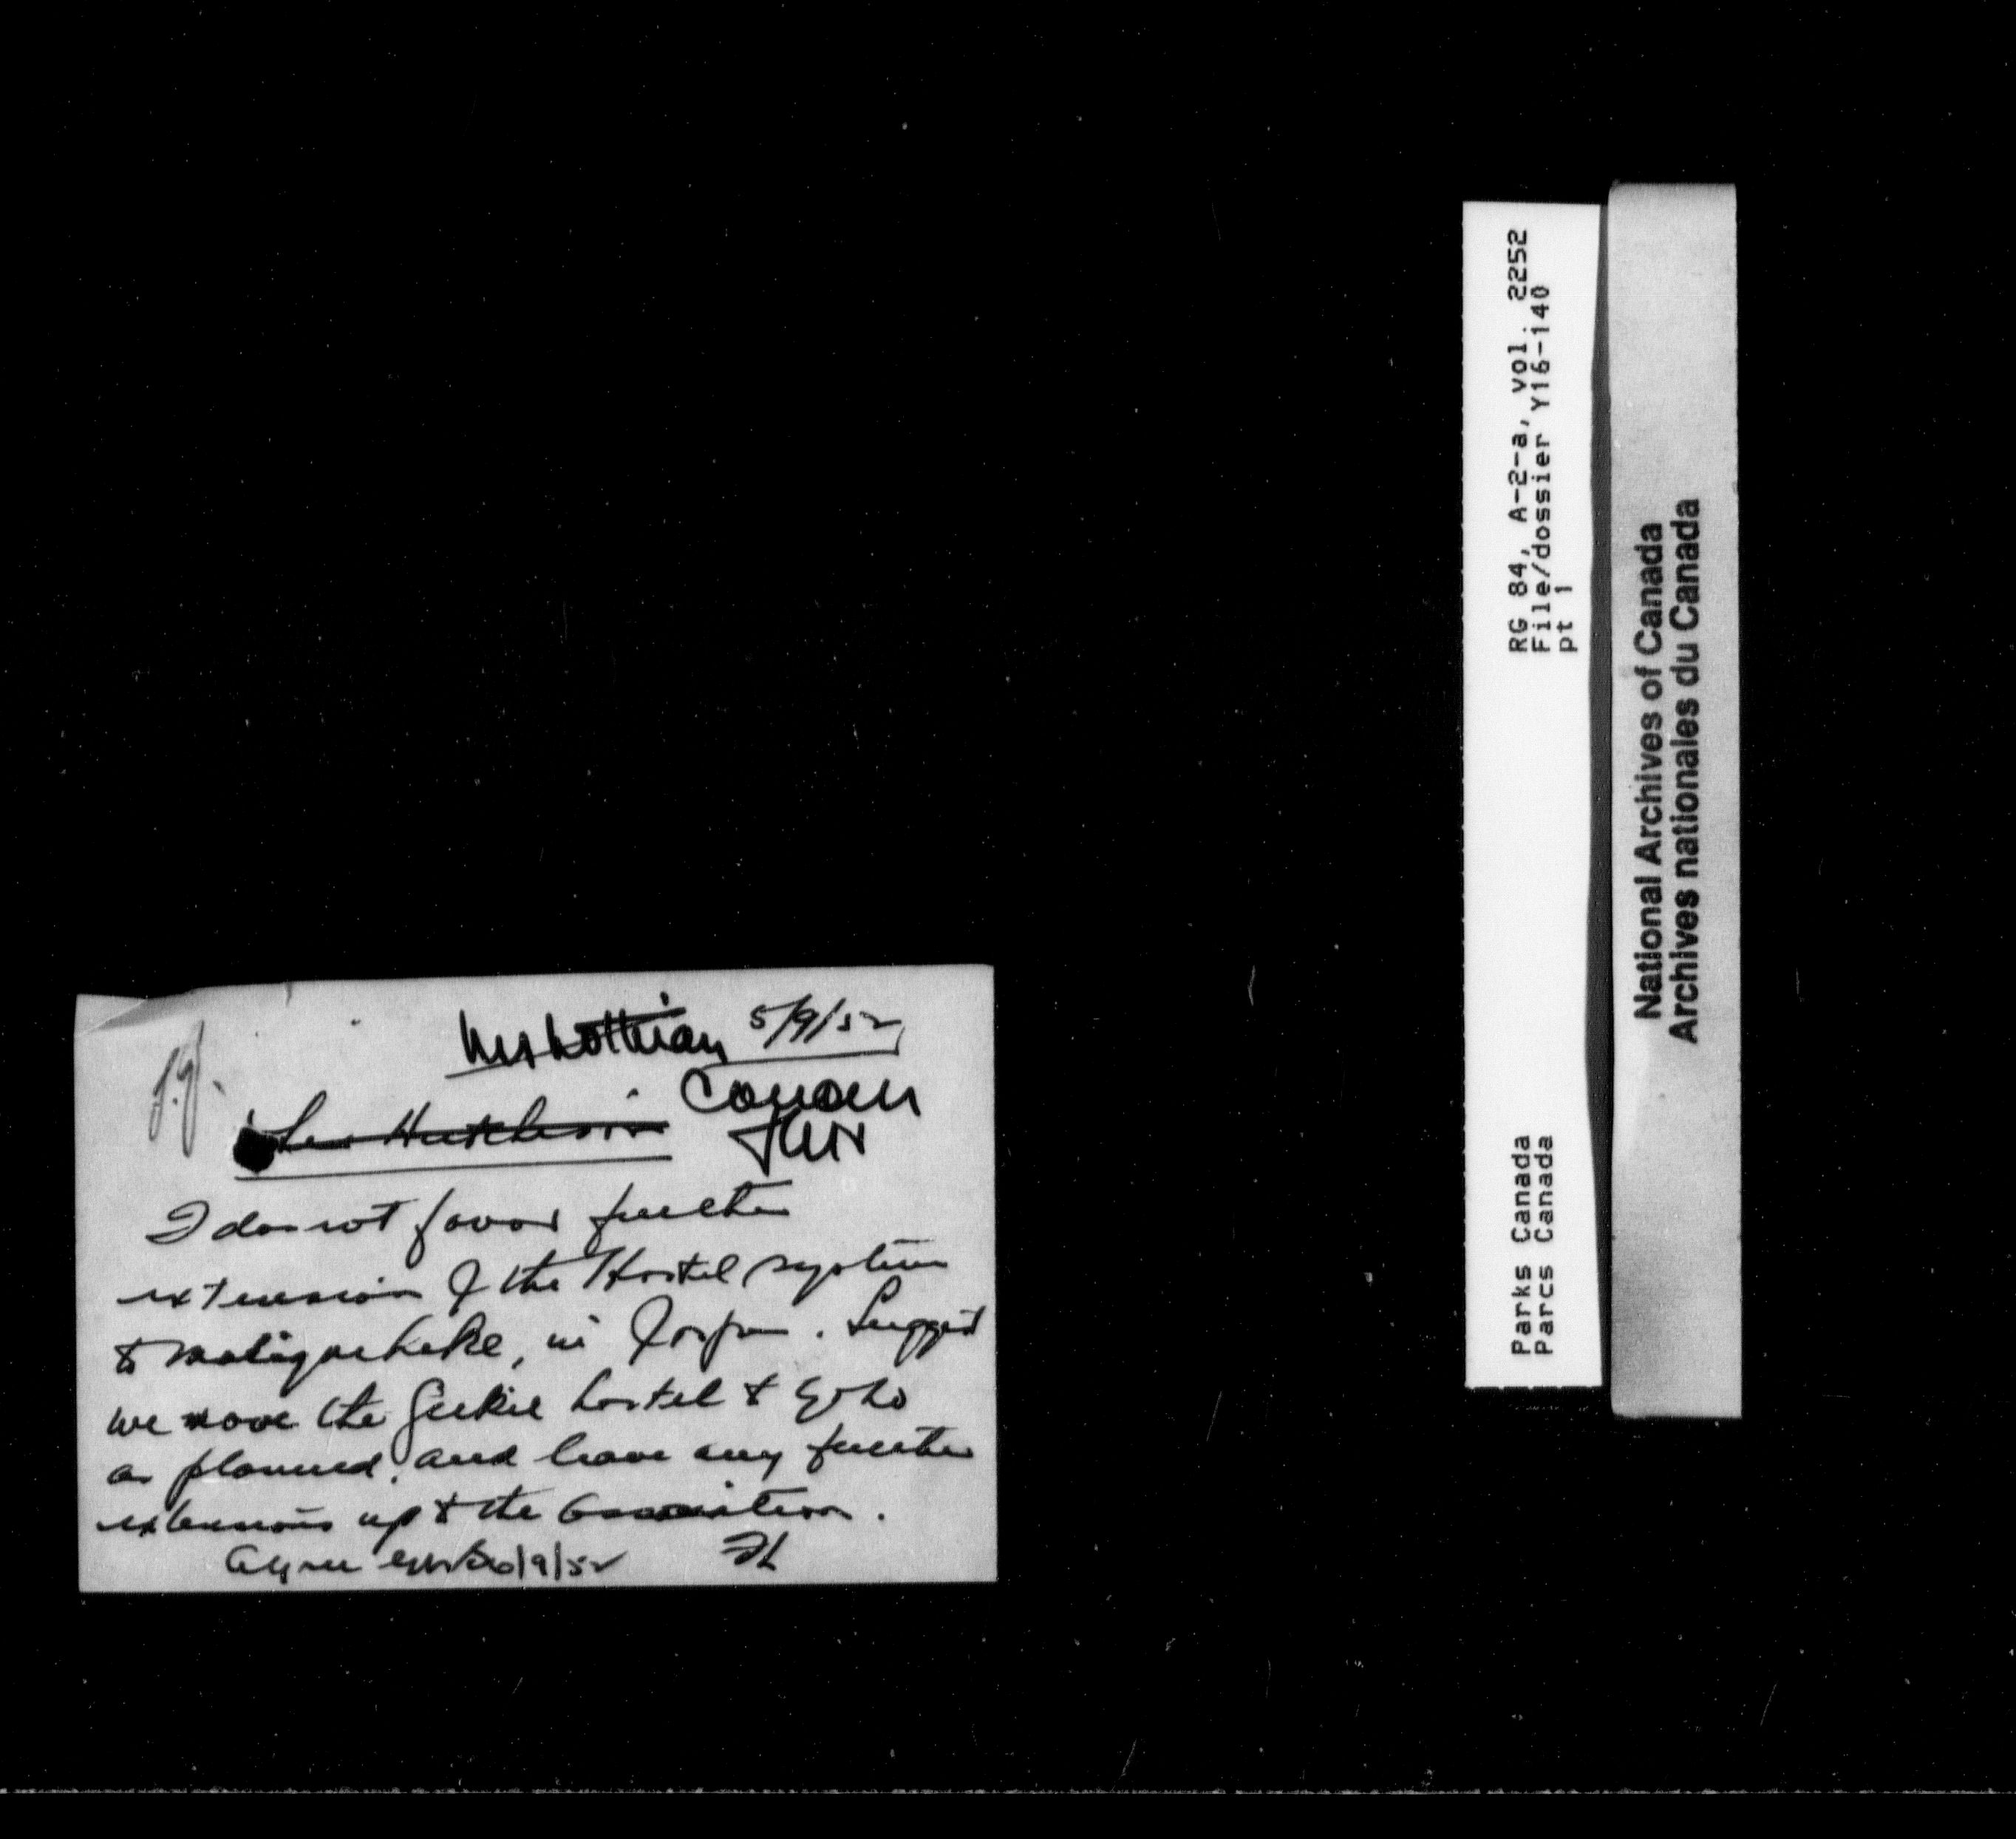 Mr Lothian 5/9/52
Concur
Hutchison
I do not favor further
extension of the Hostel system
to Maligne Lake, in Jasper. Suggest
we move the Geikie hostel to Yoho
as planned, and leave any further
extensions up to the Association.
Agree 6/9/52
RG 84, A-2-a, vol. 2252
File/dossier Y16-140
pt 1
Parks Canada
Parcs Canada
National Archives of Canada
Archives nationales du Canada